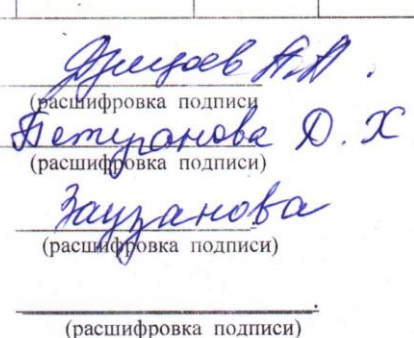 (расшифровка подписи
Бетуганова Д. Х
(расшифровка подписи)
Заузанова
(расшифровка подписи)
(расшифровка подписи)